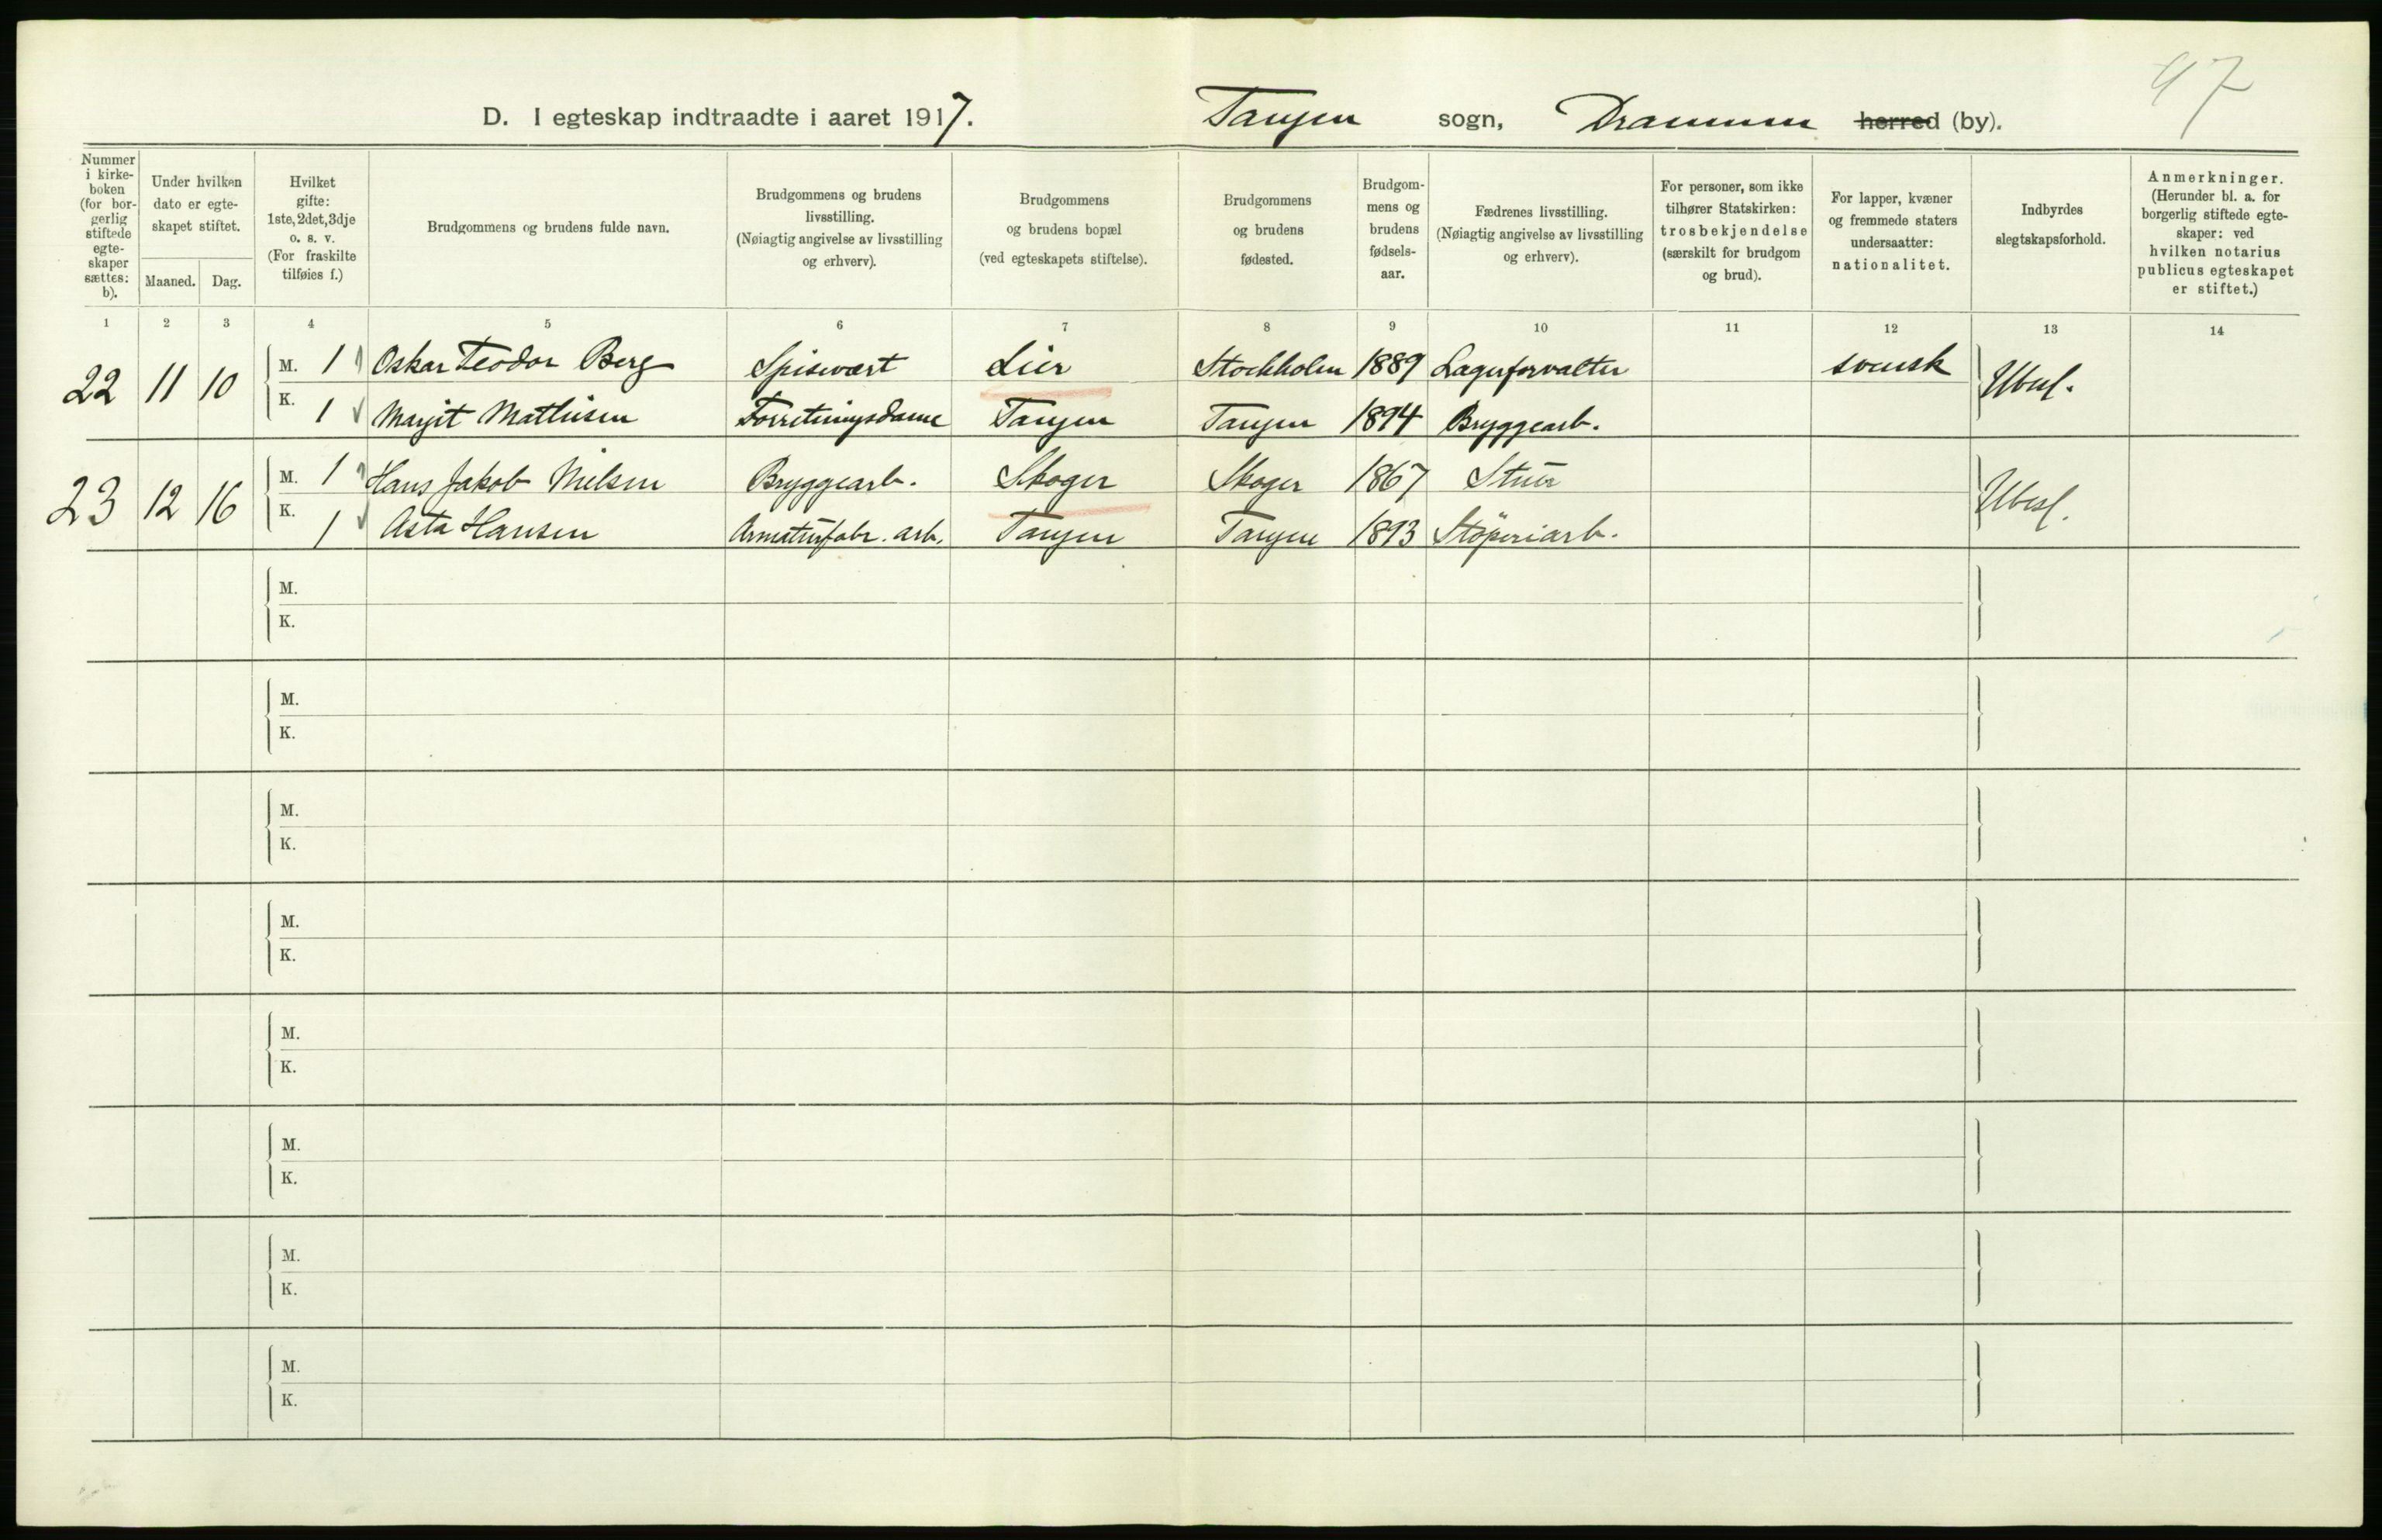 97
D. I egteskap indtraadte i aaret 1917. Tangen sogn, Drammen herred (by).
Nummer i kirkeboken (for borgerlig stiftede egteskaper sættes: b).
Under hvilken dato er egteskapet stiftet.
Maaned. Dag.
Hvilket gifte: 1ste, 2det, 3dje o. s. v. (For fraskilte tilføies f.)
Brudgommens og brudens fulde navn.
Brudgommens og brudens livsstilling. (Nøiagtig angivelse av livsstilling og erhverv).
Brudgommens og brudens bopæl (ved egteskapets stiftelse).
Brudgommens og brudens fødested.
Brudgommens og brudens fødselsaar.
Fædrenes livsstilling. (Nøiagtig angivelse av livsstilling og erhverv).
For personer, som ikke tilhører Statskirken: trosbekjendelse (særskilt for brudgom og brud).
For lapper, kvæner og fremmede staters undersaatter: nationalitet.
Indbyrdes slegtskapsforhold.
Anmerkninger. (Herunder bl. a. for borgerlig stiftede egteskaper: ved hvilken notarius publicus egteskapet er stiftet.)
1 2 3 4 5 6 7 8 9 10 11 12 13 14
22 11 10 M. 1 Oskar Teodor Berg Spisevært Lier Stockholm 1889 Lagerforvalter svensk Ubesl.
K. 1 Marjit Mathisen Forretningsdame Tangen Tangen 1894 Bryggearb.
23 12 16 M. 1 Hans Jakob Nielsen Bryggearb. Skoger Skoger 1867 Stuer Ubesl.
K. 1 Asta Hansen Armaturfabr. arb. Tangen Tangen 1893 Støperiarb.
M.
K.
M.
K.
M.
K.
M.
K.
M.
K.
M.
K.
M.
K.
M.
K.